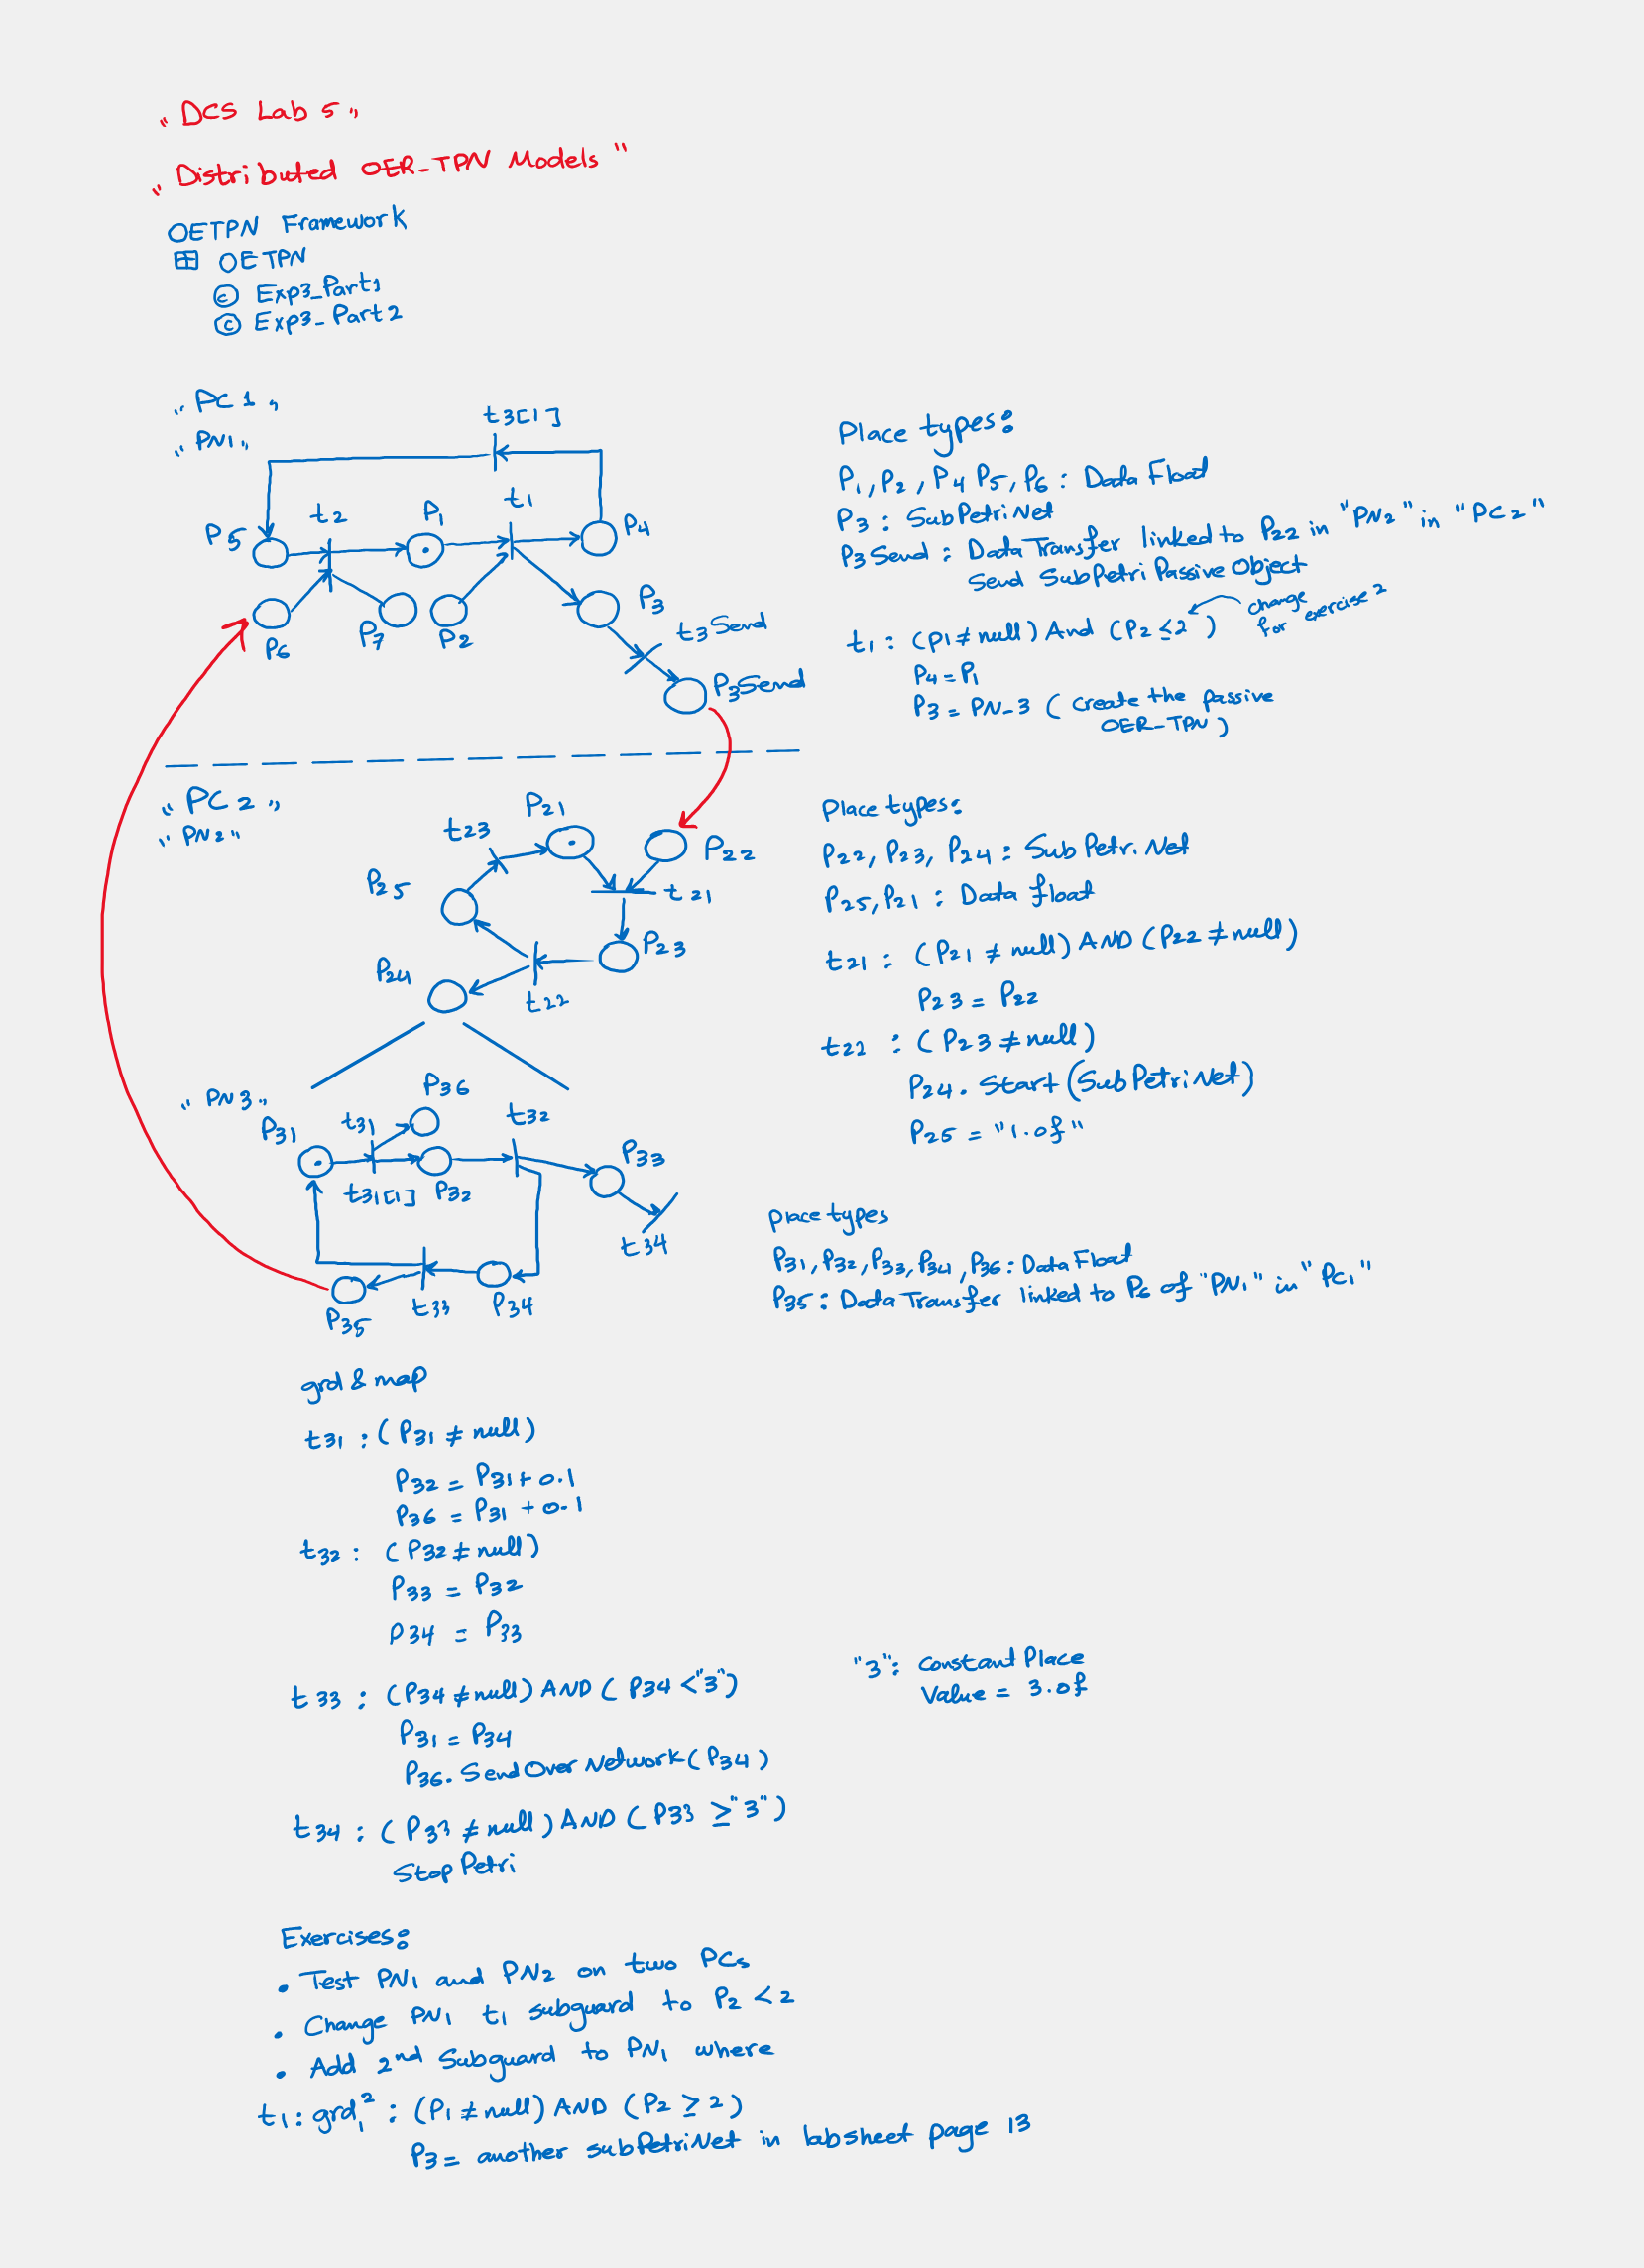 " DCS Lab 5 "
" Distributed OER_TPN Models "
OETPN Framework
OETPN
c Exp3_Part1
c Exp3_Part2
" PC1 "
" PN1 "
t3[1]
P5
t2
P1
t1
P4
P6
P7
P2
P3
t3Send
P3Send
Place types:
P1, P2, P4 P5, P6 : Data Float
P3 : SubPetriNet
P3Send : DataTransfer linked to P22 in "PN2" in "PC2"
Send SubPetri Passive Object
t1 : (P1 ≠ null) And (P2 ≤ 2)
change for exercise 2
P4 = P1
P3 = PN_3 ( Create the passive
OER_TPN )
" PC2 "
" PN2 "
t23
P21
P22
P25
t21
P23
P24
t22
Place types:
P22, P23, P24 : SubPetriNet
P25, P21 : Data float
t21 : (P21 ≠ null) AND (P22 ≠ null)
P23 = P22
t22 : (P23 ≠ null)
P24. Start (SubPetriNet)
P25 = "1.0f"
" PN3 "
P31
t31
P36
t32
P33
t31[1]
P32
t34
P35
t33
P34
place types
P31, P32, P33, P34, P36 : Data Float
P35 : DataTransfer linked to P6 of "PN1" in "PC1"
grd & map
t31 : (P31 ≠ null)
P32 = P31 + 0.1
P36 = P31 + 0.1
t32 : (P32 ≠ null)
P33 = P32
P34 = P33
t33 : (P34 ≠ null) AND (P34 < "3")
"3": Constant Place
Value = 3.0f
P31 = P34
P36. SendOverNetwork (P34)
t34 : (P33 ≠ null) AND (P33 ≥ "3")
Stop Petri
Exercises:
• Test PN1 and PN2 on two PCs
• Change PN1 t1 subguard to P2 < 2
• Add 2nd Subguard to PN1 where
t1 : grd1² : (P1 ≠ null) AND (P2 ≥ 2)
P3 = another subPetriNet in labsheet page 13